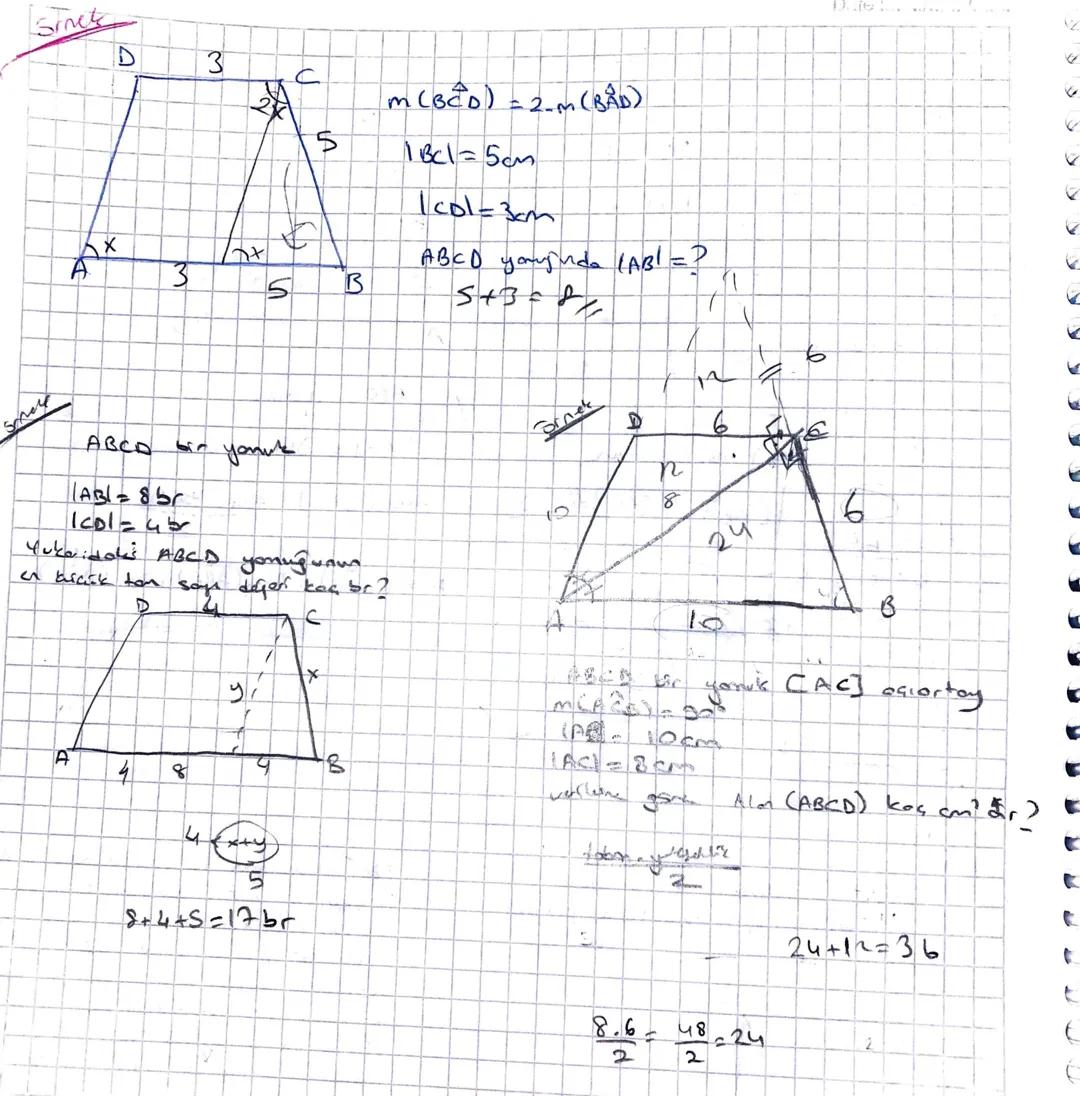 Örnek
D 3 C
2x
5
x x
A 3 5 B
m(BĈD) = 2.m(BÂD)
|BC| = 5cm
|CD| = 3cm
ABCD yamuğunda |AB| = ?
5+3 = 8
Örnek
ABCD bir yamuk
|AB| = 8 br
|CD| = 4 br
Yukarıdaki ABCD yamuğunun
en küçük tam sayı değeri kaç br?
D 4 C
y x
A 4 8 4 B
4 < x+y
5
8+4+5 = 17 br
Örnek
6
12
D 6 C
12
10 8 6
24
A 10 B
ABCD bir yamuk [AC] açıortay
m(AĈB) = 90°
10cm
|AC| = 8cm
göre Alan (ABCD) kaç cm² dir?
2
24+12 = 36
8.6/2 = 48/2 = 24